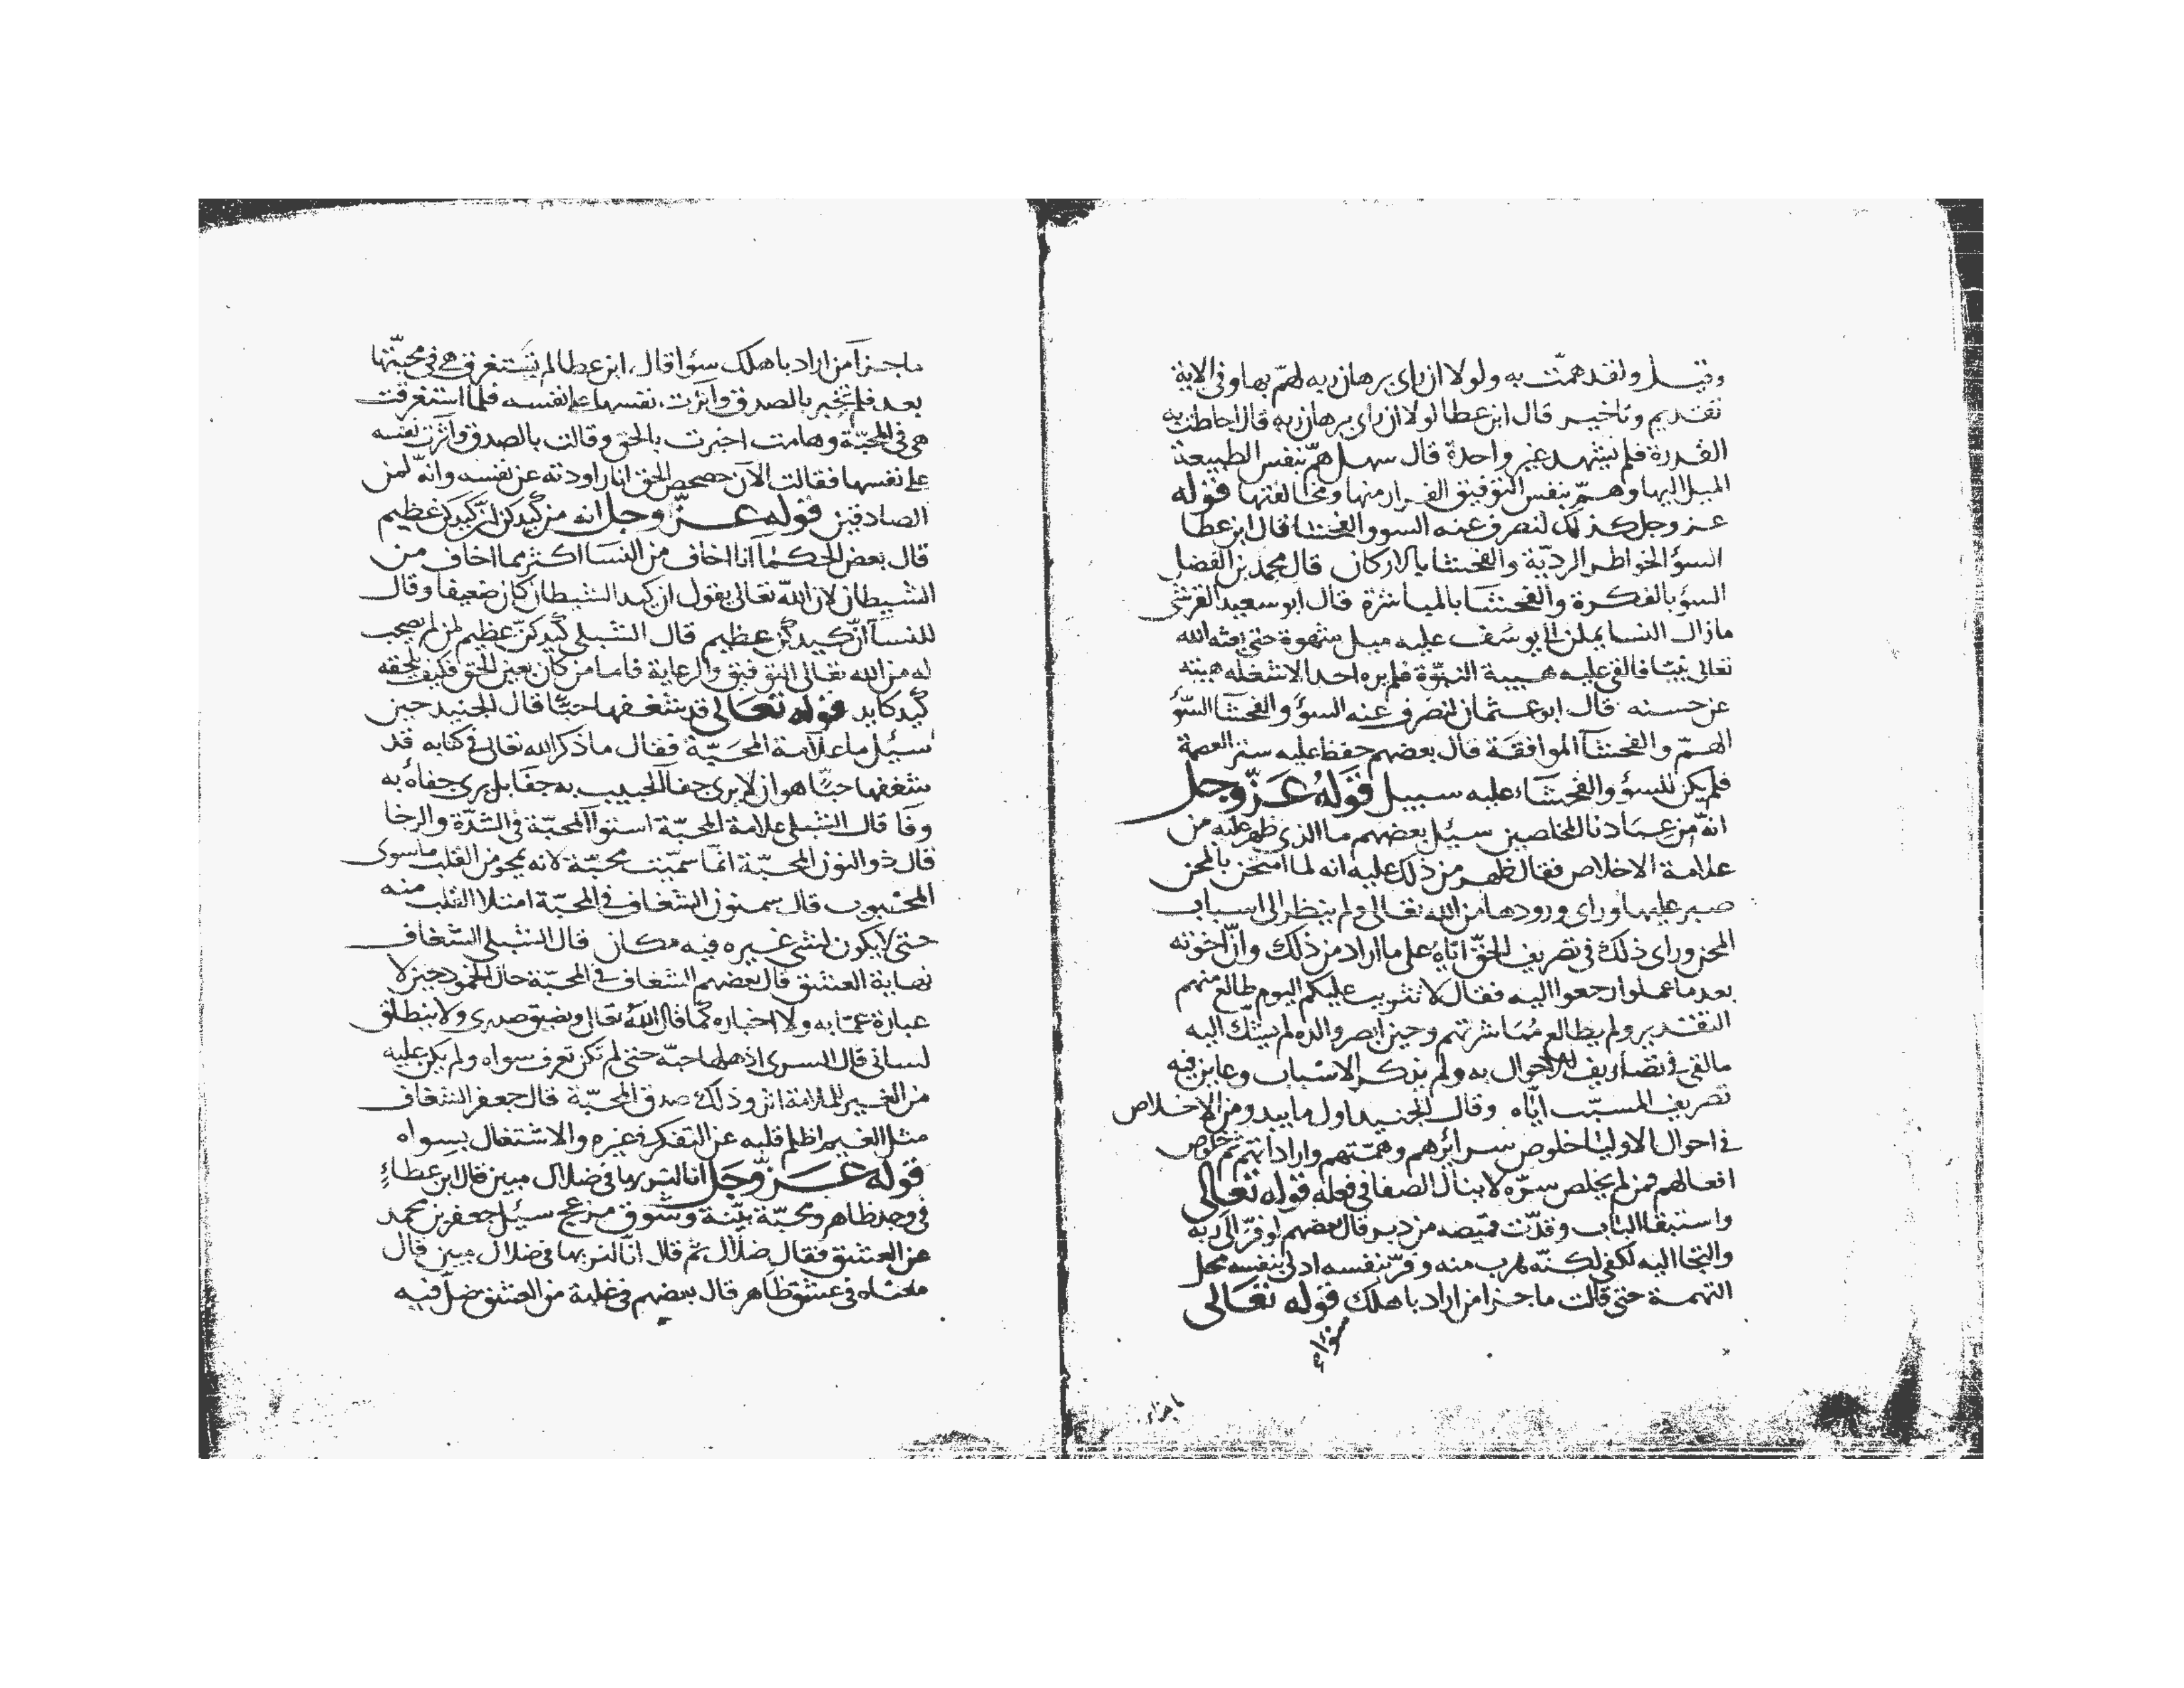 وقيل ولقد همّت به ولولا ان راى برهان ربه لهمّ بها وفى الاية
تقديم وتاخير قال ابن عطا لولا ان راى برهان ربه قال احاطت به
القدرة فلم يشهد غير واحدة قال سهل همّ بنفس الطبيعة
الميل اليها وهمّ بنفس التوفيق الفرار منها ومخالفتها قوله
عز وجل كذلك لنصرف عنه السوو الفحشا قال ابن عطا
السؤ الخواطر الرديّة والفحشا بالاركان قال محمد بن الفضل
السؤ بالفكرة والفحشا بالمباشرة قال ابو سعيد القرشى
مازال النسا يملن الى يوسف عليه ميل شهوة حتى بعثه الله
تعالى نبيّا فالقى عليه هيبة النبوّة فلم يره احد الا شغله هيبته
عن حسنه قال ابو عثمان لنصرف عنه السؤ والفحشآ السّؤ
الهمّ والفحشآ الموافقة قال بعضهم حفظ عليه ستر العصمة
فلم يكن للسؤ والفحشاء عليه سبيل قوله عزّ وجل
انهّ من عبادنا المخلصين سئل بعضهم ما الذى ظهر عليه من
علامة الاخلاص فقال ظهر من ذلك عليه انه لما امتحن بالمحن
صبر عليها وراى ورودها من الله تعالى ولم ينظر الى اسباب
المحن وراى ذلك فى تصريف الحقّ ايّاه على ما اراد من ذلك وانّ اخوته
بعد ما عملوا رجعوا اليه فقال لا تثريب عليكم اليوم طالع منهم
التقدير ولم يطالع مُباشرتهم وحين ابصر والده لم يشك اليه
مالقى فى تصاريف الاحوال به ولم يذكر الاسباب وعاين فيه
تصريف المسبّب ايّاه وقال الجنيد اول ما يبدو من الاخلاص
فى احوال الاوليا خلوص سرائرهم وهمّتهم واراداتهم ثم خلوص
افعالهم فمن لم يخلص سرّه لا ينال الصفا فى فعله قوله تعالى
واستبقا الباب وقدّت قميصه من دبر قال بعضهم لو فرّ الى ربه
والتجا اليه لكفى لكنّه هرب منه وفرّ بنفسه ادلى بنفسه محل
التهمة حتى قالت ما جزا من اراد باهلك قوله تعالى
سؤا
ما جزا
ماجزآ من اراد باهلك سؤا قال ابن عطا لم تستغرق هى فى محبّتها
بعد فلم تخبر بالصدق وآثرت نفسها على نفسه فلما استغرقت
هى فى المحبّة وهامت اخبرت بالحق وقالت بالصدق وآثرت نفسه
على نفسها فقالت الآن حصحص الحق انا راودته عن نفسه وانهّ لمن
الصادقين قوله عزّ وجل انه من كيدكن انّ كيدكن عظيم
قال بعض الحكمآ انا اخاف من النسا اكثر مما اخاف من
الشيطان لان اللّه تعالى يقول ان كيد الشيطان كان ضعيفا وقال
للنسآ انّ كيدكن عظيم قال الشبلى كيدكنّ عظيم لمن لم يصحب
له من الله تعالى التوفيق والرعاية فاما من كان بعين الحق فكيف يلحقه
كيد كايد قوله تعالى قد شغفها حبّا قال الجنيد حين
سئل ما علامة المحبّة فقال ما ذكر الله تعالى فى كتابه قد
شغفها حبّا هو ان لا يرى جفا الحبيب به جفا بل يرى جفاه به
وفا قال الشبلى علامة المحبّة استوآ المحبّة فى الشدّة والرخا
قال ذو النون المحبّة انّما سميّت محبّة لانه يمحو من القلب ماسوى
المحبوب قال سمنون الشغاف فى المحبّة امتلا القلب منه
حتى لا يكون لشى غيره فيه مكان قال الشبلى الشغاف
نهاية العشق قال بعضهم الشغاف فى المحبّة حال الخمود حين لا
عبارة عمّا به ولا اخباره كما قال اللّه تعالى ويضيق صدرى ولا ينطلق
لسانى قال السرى اذهلها حبّه حتى لم تكن تعرف سواه ولم يكن عليه
من الغيير للملامة اثر وذلك صدق المحبّة قال جعفر الشغاف
مثل الغيم اظلم قلبه عن التفكر فى غيره والاشتغال بسواه
قوله عزّ وجلّ انا لنريها فى ضلال مبين قال ابن عطاء
فى وجد ظاهر ومحبّة بيّنة وشوق مزعج سئل جعفر بن محمد
عن العشق فقال ضلال ثم قلا انّا لنريها فى ضلال مبين قال
معناه فى عشق ظاهر قال بعضهم فى غلبة من العشق ضلّ فيه